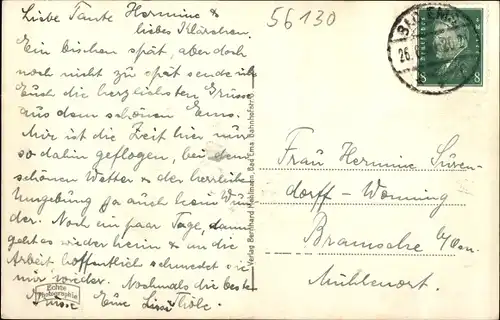 Liebe Tante Hermine &
liebes Klärchen.
Ein bischen spät, aber doch
noch nicht zu spät sende ich
Euch die herzlichsten Grüsse
aus dem schönen Ems.
Mir ist die Zeit hier nur
so dahin geflogen, bei dem
schönen Wetter & der herrlichen
Umgebung ja auch kein Wun
der. Noch ein paar Tage, dann
geht es wieder heim & an die
Arbeit hoffentlich schmeckt sie
mir wieder. Nochmals die besten
Grüsse Eure
Echte
Photographie
56130
BAD EMS
26.
8
8
Verlag Bernhard Bad Ems Bahnhofstr.
Frau Hermine Süven-
dorff-Wonning
Bramsche
Mühlenort.